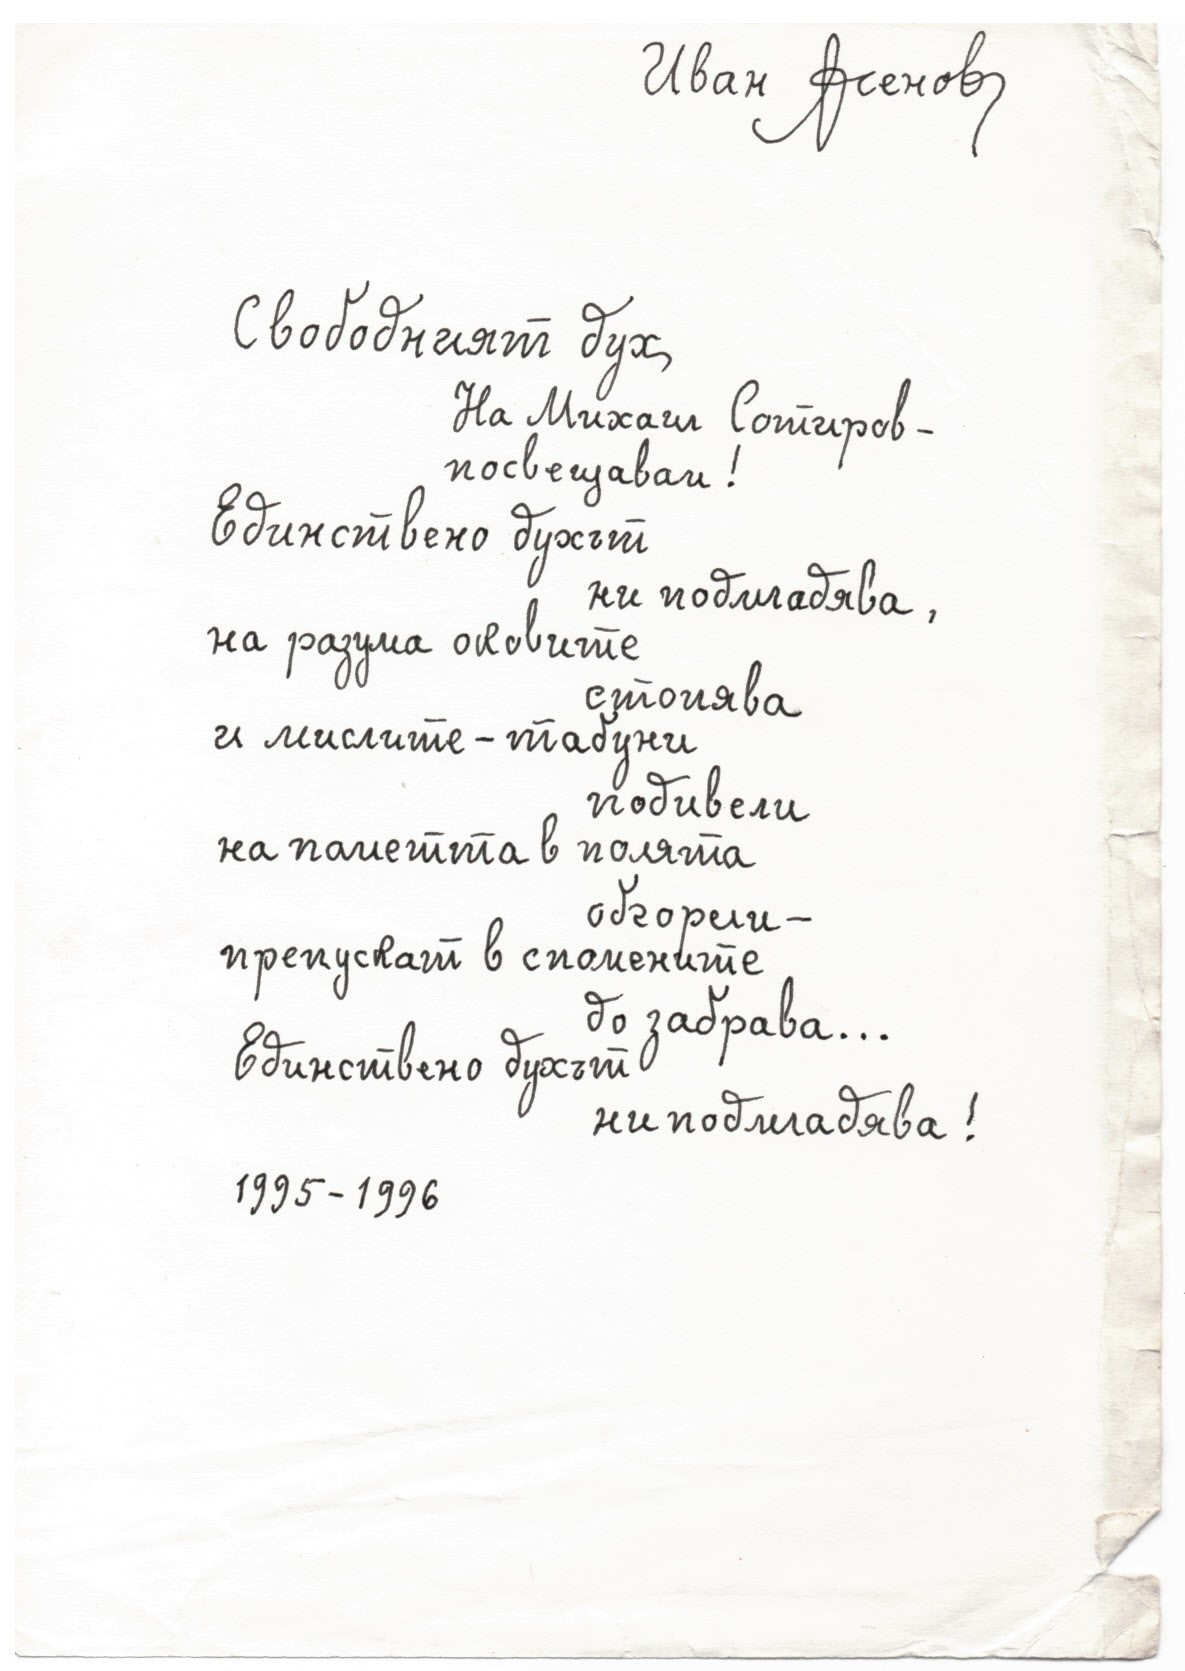 Иван Асенов
Свободният дух
На Михаил Сотиров -
посвещавам!
Единствено духът
ни подмладява,
на разума оковите
стопява
и мислите - табуни
подивели
на паметта в полята
обгорели -
препускат в спомените
до забрава...
Единствено духът
ни подмладява!
1995 - 1996